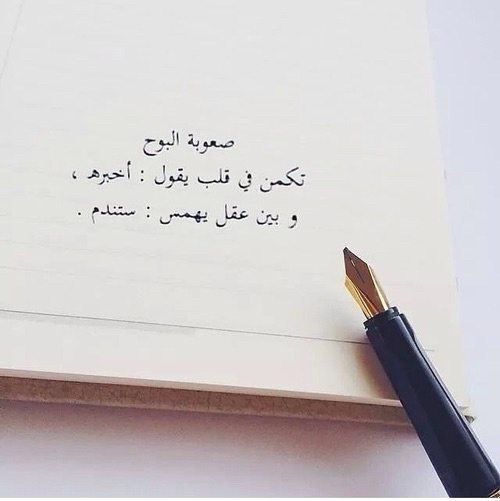 صعوبة البوح
تكمن في قلب يقول : أخبرهـ ،
و بين عقل يهمس : ستندم .